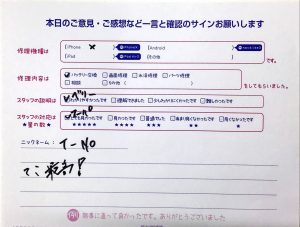 本日のご意見・ご感想など一言と確認のサインお願いします
修理機種は
iPhone
Android
iPad
その他
です。
修理内容は
バッテリー交換 画面修理 水没修理 パーツ修理
相談 その他
をしてもらいました。
スタッフの説明は
わかりやすかったです 理解できました 少しわかりにくかったです 難しかったです
スタッフの対応は
★星の数★
とても良かったです 良かったです 普通でした あまり良くなかったです 良くなかったです
★★★★★ ★★★★ ★★★ ★★ ★
ニックネーム:
T-NO
無事に直って良かったです。ありがとうございました